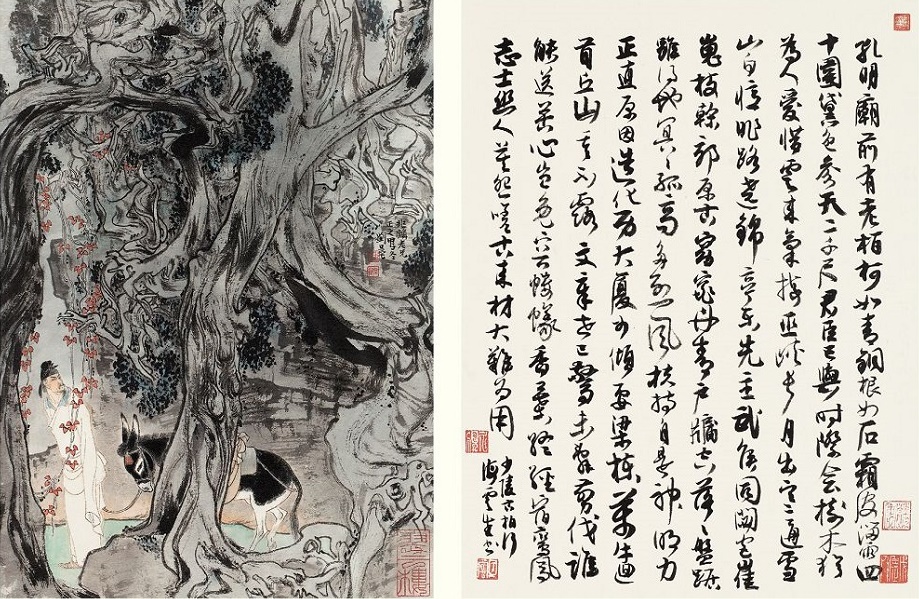 孔明廟前有老柏柯如青銅根如石霜皮溜雨四
十圍黛色參天二千尺君臣已與時際會樹木猶
為人愛惜雲來氣接巫峽長月出寒通雪
山白憶昨路遶錦亭東先主武侯同閟宮崔
嵬枝幹郊原古窈窕丹青戶牖空落落盤踞
雖得地冥冥孤高多烈風扶持自是神明力
正直原因造化功大廈如傾要梁棟萬牛迴
首丘山重不露文章世已驚未辭剪伐誰
能送苦心豈免容螻蟻香葉終經宿鸞鳳
志士幽人莫怨嗟古來材大難為用
少陵古柏行
海雲生書